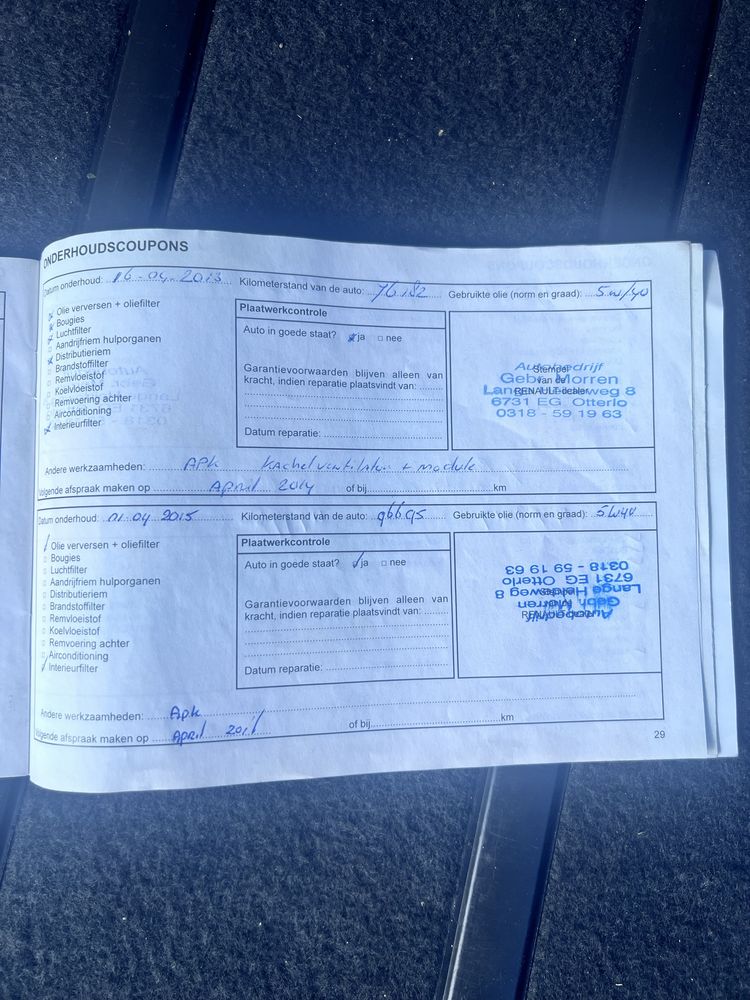 ONDERHOUDSCOUPONS
Datum onderhoud: 16-04-2013 Kilometerstand van de auto: 76.182 Gebruikte olie (norm en graad): 5w/40
Olie verversen + oliefilter
Bougies
Luchtfilter
Aandrijfriem hulporganen
Distributieriem
Brandstoffilter
Remvloeistof
Koelvloeistof
Remvoering achter
Airconditioning
Interieurfilter
Plaatwerkcontrole
Auto in goede staat? ja nee
Garantievoorwaarden blijven alleen van
kracht, indien reparatie plaatsvindt van:
Datum reparatie:
Stempel
van de
RENAULT-dealer
Autobedrijf
Gebr. Morren
Lange Heideweg 8
6731 EG Otterlo
0318 - 59 19 63
Andere werkzaamheden: APK Kachelventilator + module
Volgende afspraak maken op April 2014 of bij km
Datum onderhoud: 01-04-2015 Kilometerstand van de auto: Gebruikte olie (norm en graad): 5W40
Olie verversen + oliefilter
Bougies
Luchtfilter
Aandrijfriem hulporganen
Distributieriem
Brandstoffilter
Remvloeistof
Koelvloeistof
Remvoering achter
Airconditioning
Interieurfilter
Plaatwerkcontrole
Auto in goede staat? ja nee
Garantievoorwaarden blijven alleen van
kracht, indien reparatie plaatsvindt van:
Datum reparatie:
Autobedrijf
Gebr. Morren
Lange Heideweg 8
6731 EG Otterlo
0318 - 59 19 63
Andere werkzaamheden: Apk
Volgende afspraak maken op April of bij km
29